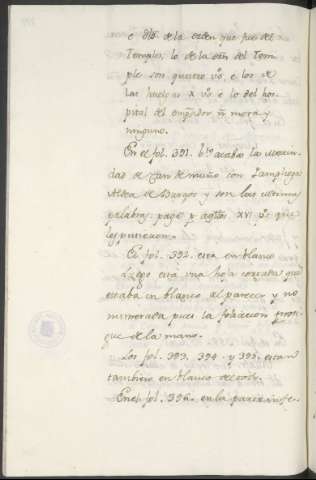 e dho de la orden que fue del
Temple, lo de la orn del Tem-
ple son quatro vos, e los de
las huelgas x vos e lo del hos-
pital del emperador ñ mora y
ninguno.
En el fol. 391. bto acaban las merin-
dades de Can de muño con
Aldea de Burgos y son las ultimas
palabras: page p agtos XVI ps que
les pusieron.
El fol. 392. esta en blanco
Luego esta una hoja cortada que
estaba en blanco, al parecer, y no
numerada pues la foliacion prosi-
gue de la mano.
Los fol. 393. 394. y 395. estan
tambien en blanco
En el fol. 396. en la parte infe-